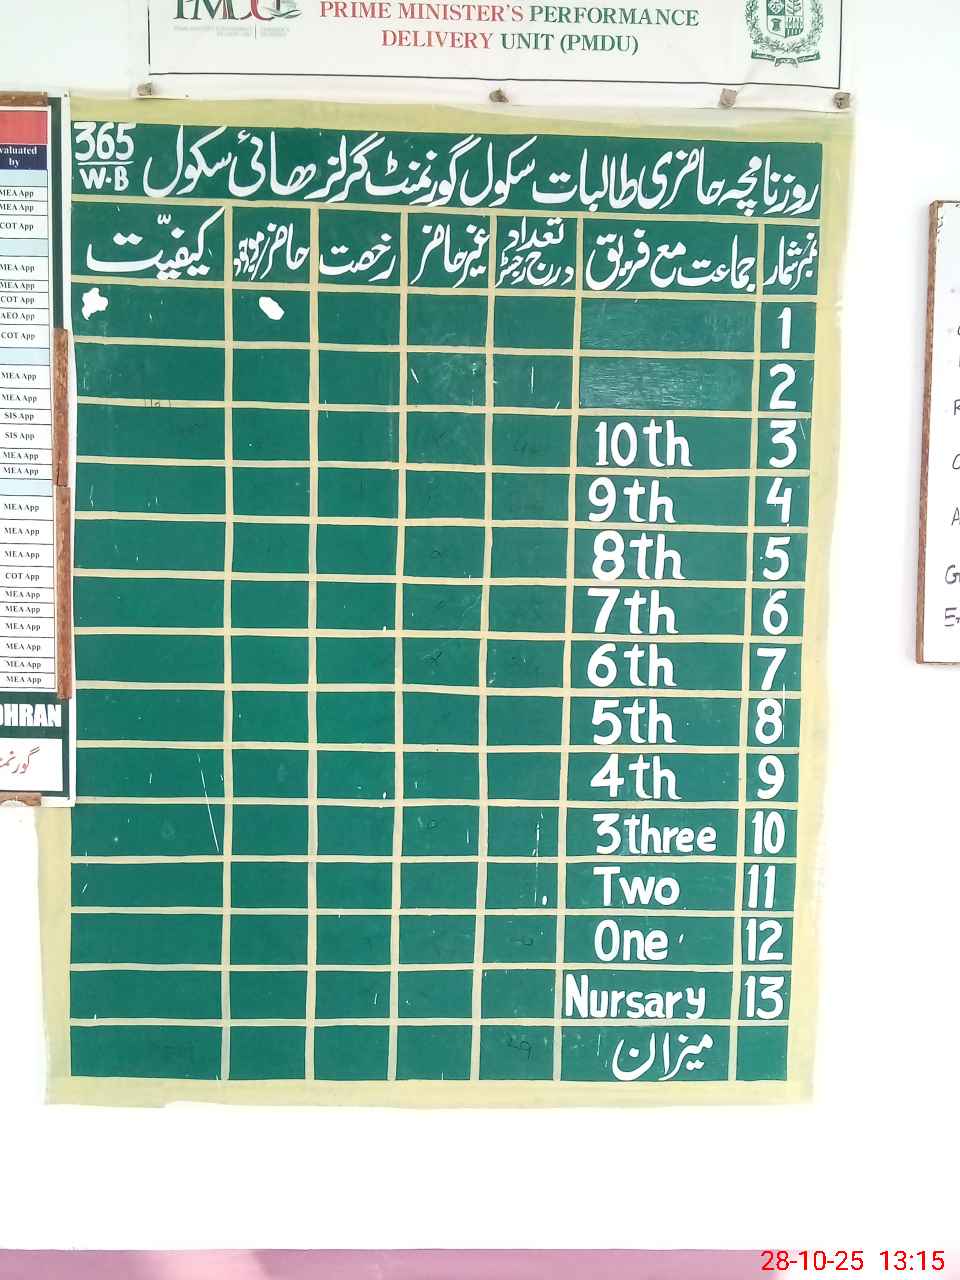 PRIME MINISTER'S PERFORMANCE
DELIVERY UNIT (PMDU)
روزنامچہ حاضری طالبات سکول گورنمنٹ گرلز ھائی سکول 365 W.B
نمبر شمار جماعت مع فریق تعداد درج رجسٹر غیر حاضر رخصت حاضر کیفیّت
1
2
3 10th
4 9th
5 8th
6 7th
7 6th
8 5th
9 4th
10 3 three
11 Two
12 One
13 Nursary
میزان
valuated
by
MEA App
MEA App
COT App
MEA App
MEA App
COT App
AEO App
COT App
MEA App
MEA App
SIS App
SIS App
MEA App
MEA App
MEA App
MEA App
MEA App
COT App
MEA App
MEA App
MEA App
MEA App
MEA App
MEA App
DHRAN
28-10-25 13:15